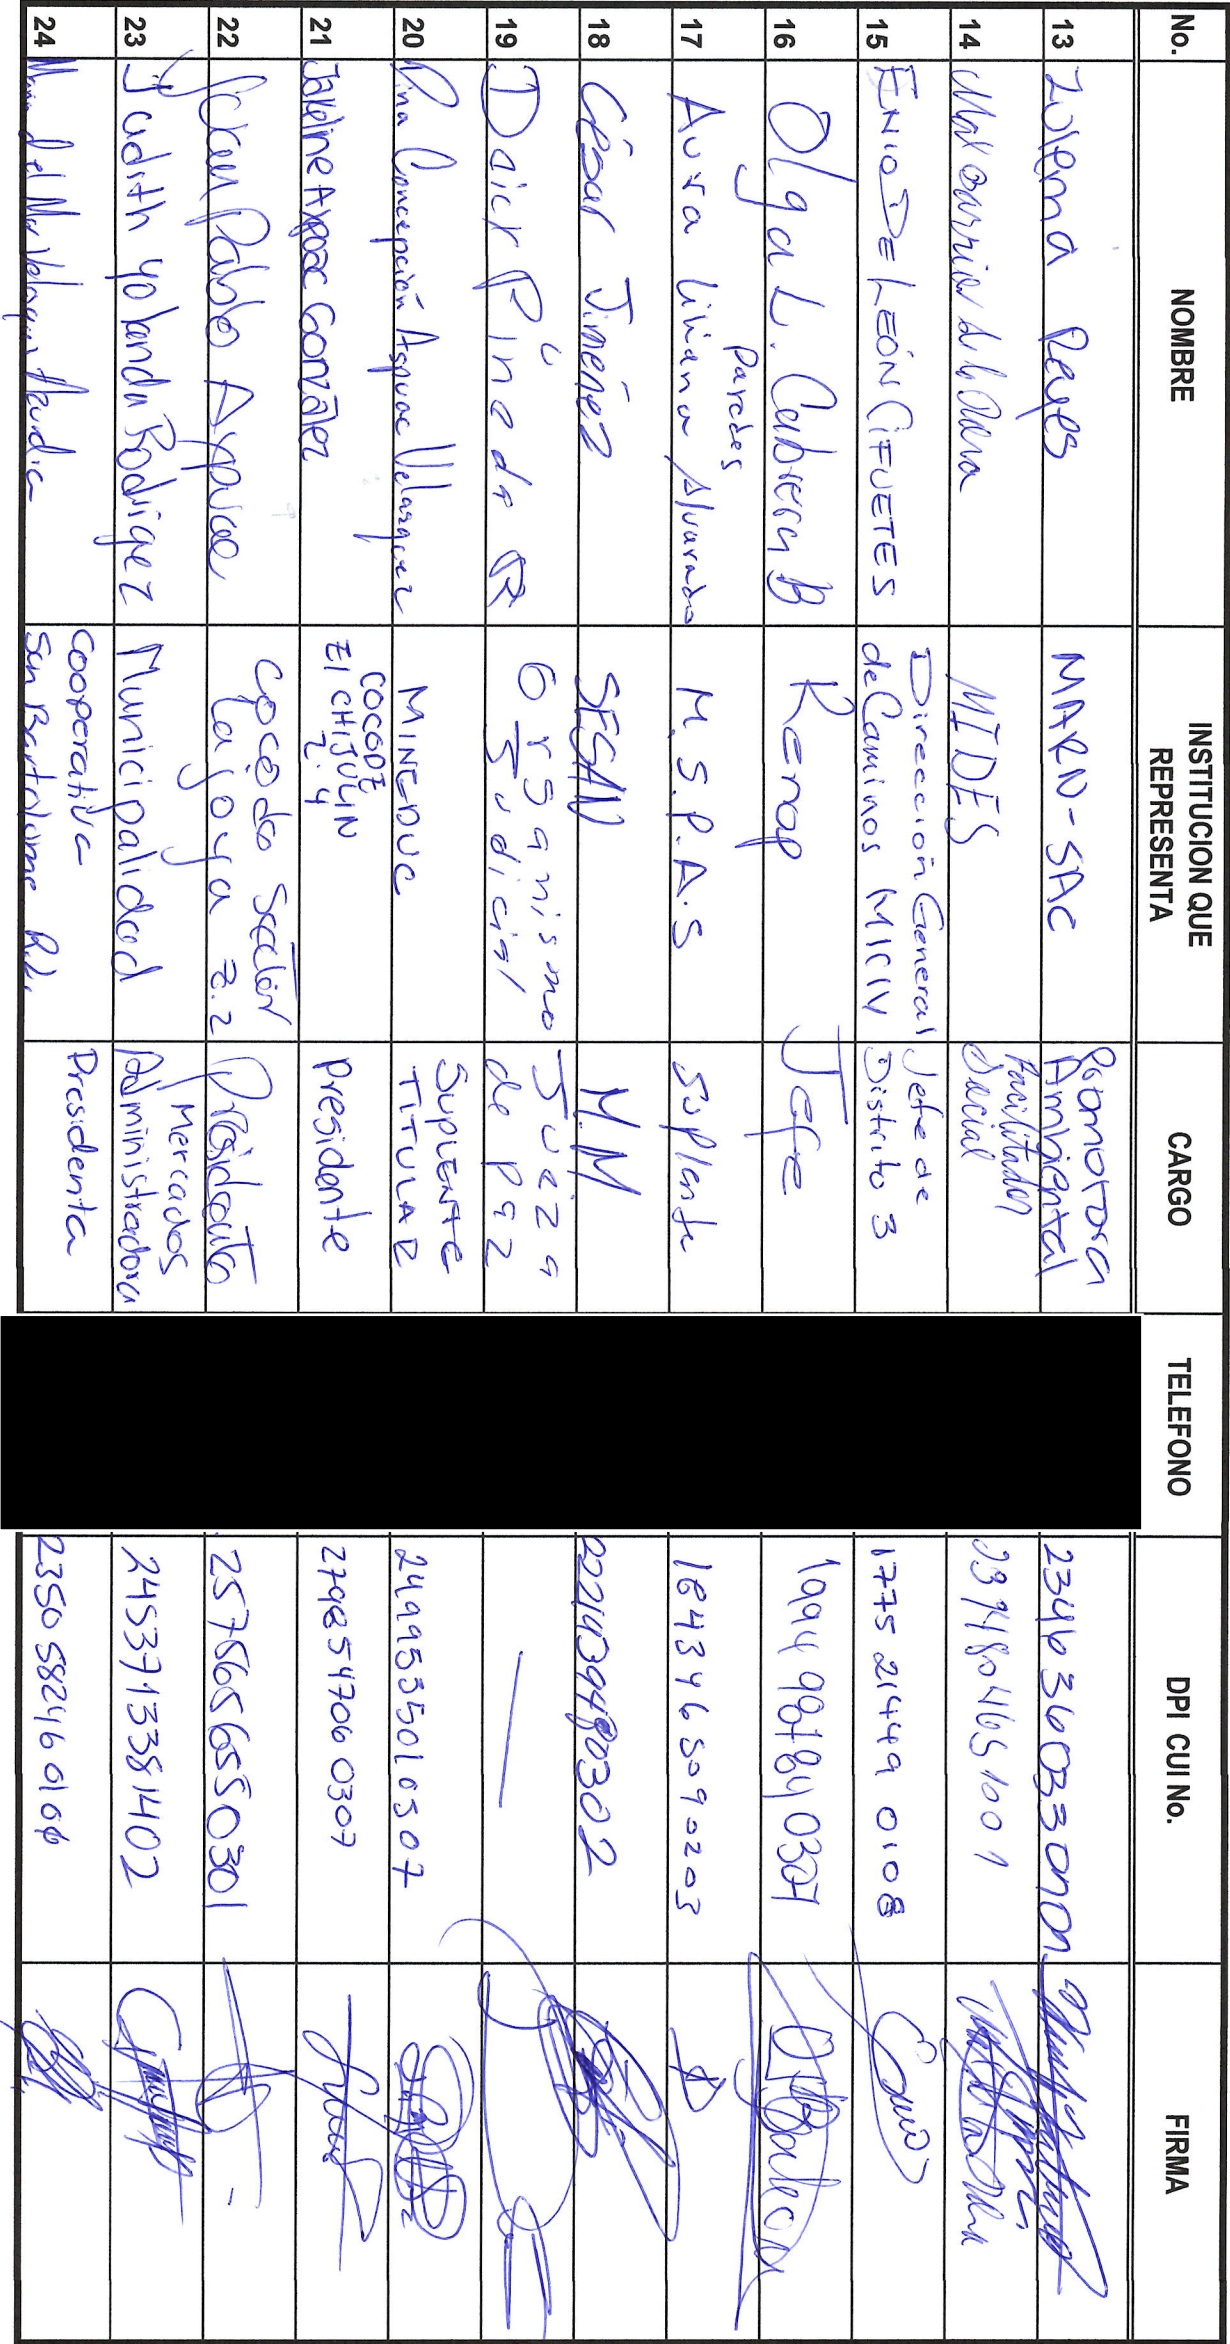 No. NOMBRE INSTITUCION QUE REPRESENTA CARGO TELEFONO DPI CUI No. FIRMA
13 Zulema Reyes MARN-SAC Promotora Ambiental 2346 36033 0101
14 de la MIDES Facilitador Social 2394804651001
15 ENIO DE LEÓN CIFUETES Dirección General de Caminos MICIV Jefe de Distrito 3 1775 21449 0108
16 Olga L. Cabrera B Renap Jefe 1994 99784 0304
17 Aura Liliana Paredes Alvarado M.S.P.A.S Suplente 1843465090203
18 César Jiménez SESAN M.M 222439480302
19 Daick Pineda R Organismo Judicial Jueza de paz —
20 Dina Concepción Axpuac Velasquez MINEDUC SUPLENTE TITULAR 2499533501307
21 Jakeline Axpuac González COCODE El CHIJULIN Z.4 presidente 2798547060307
22 Juan Pablo Axpuac Cocode Sección La Joya z.2 Presidente 2575656550301
23 Judith Yolanda Rodriguez Municipalidad Mercados Administradora 2453713381402
24 Maria del Mar Cooperativa San Bartolome Presidenta 2350582460166